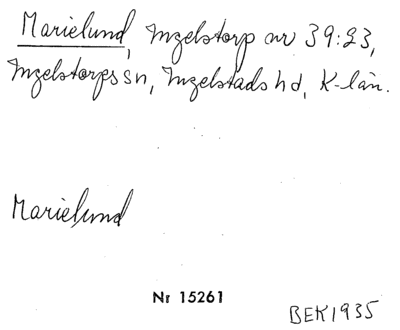 Marielund, Ingelstorp nr 39:23,
Ingelstorps sn, Ingelstads hd, K-län.
Marielund
Nr 15261
BEK1935